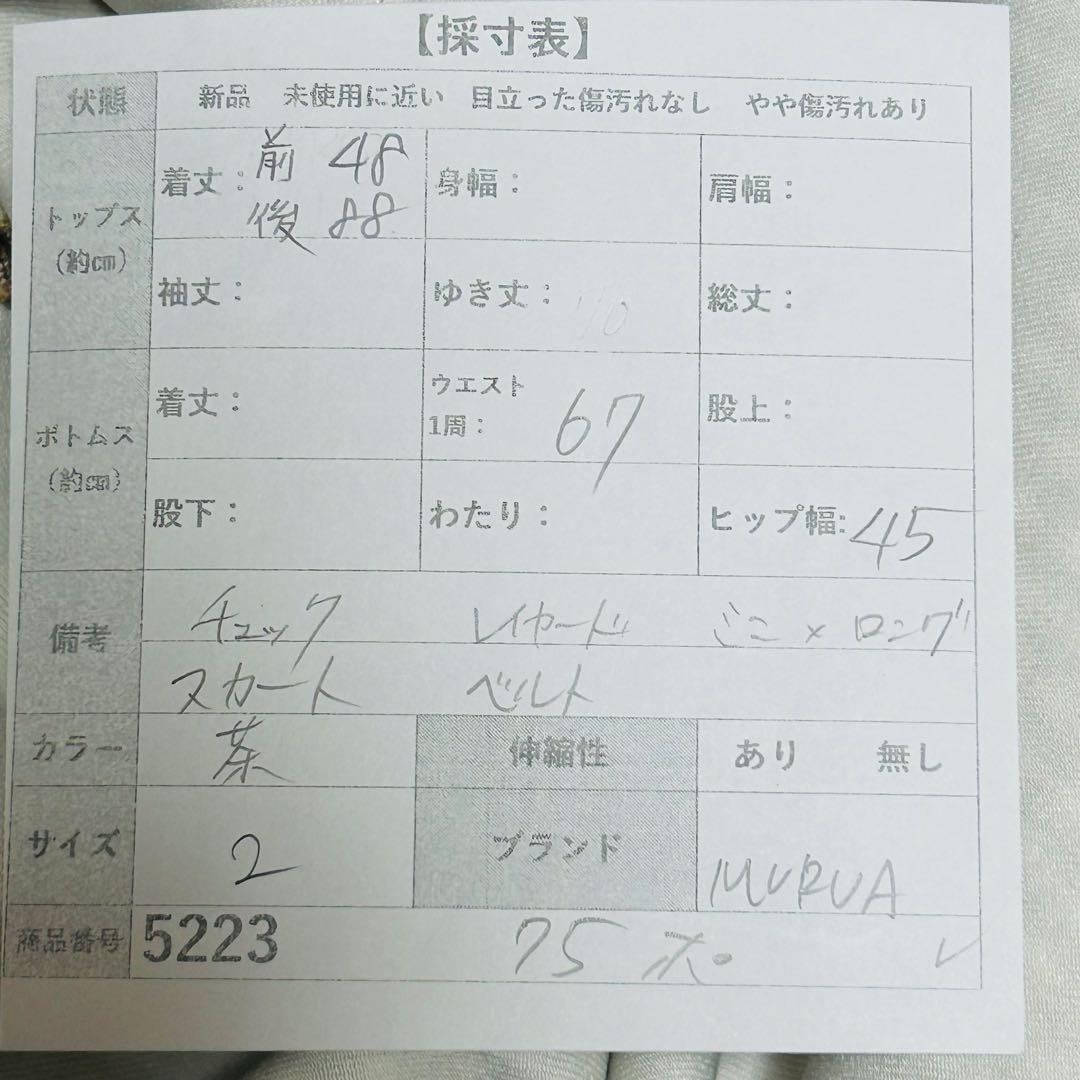 【採寸表】
状態 新品 未使用に近い 目立った傷汚れなし やや傷汚れあり
トップス
(約cm)
着丈: 前 48
後 88
身幅:
肩幅:
袖丈:
ゆき丈:
総丈:
ボトムス
(約cm)
着丈:
ウエスト
1周: 67
股上:
股下:
わたり:
ヒップ幅: 45
備考
チェック レイヤード ミニ×ロング
スカート ベルト
カラー 茶 伸縮性 あり 無し
サイズ 2 ブランド MURUA
商品番号 5223 75